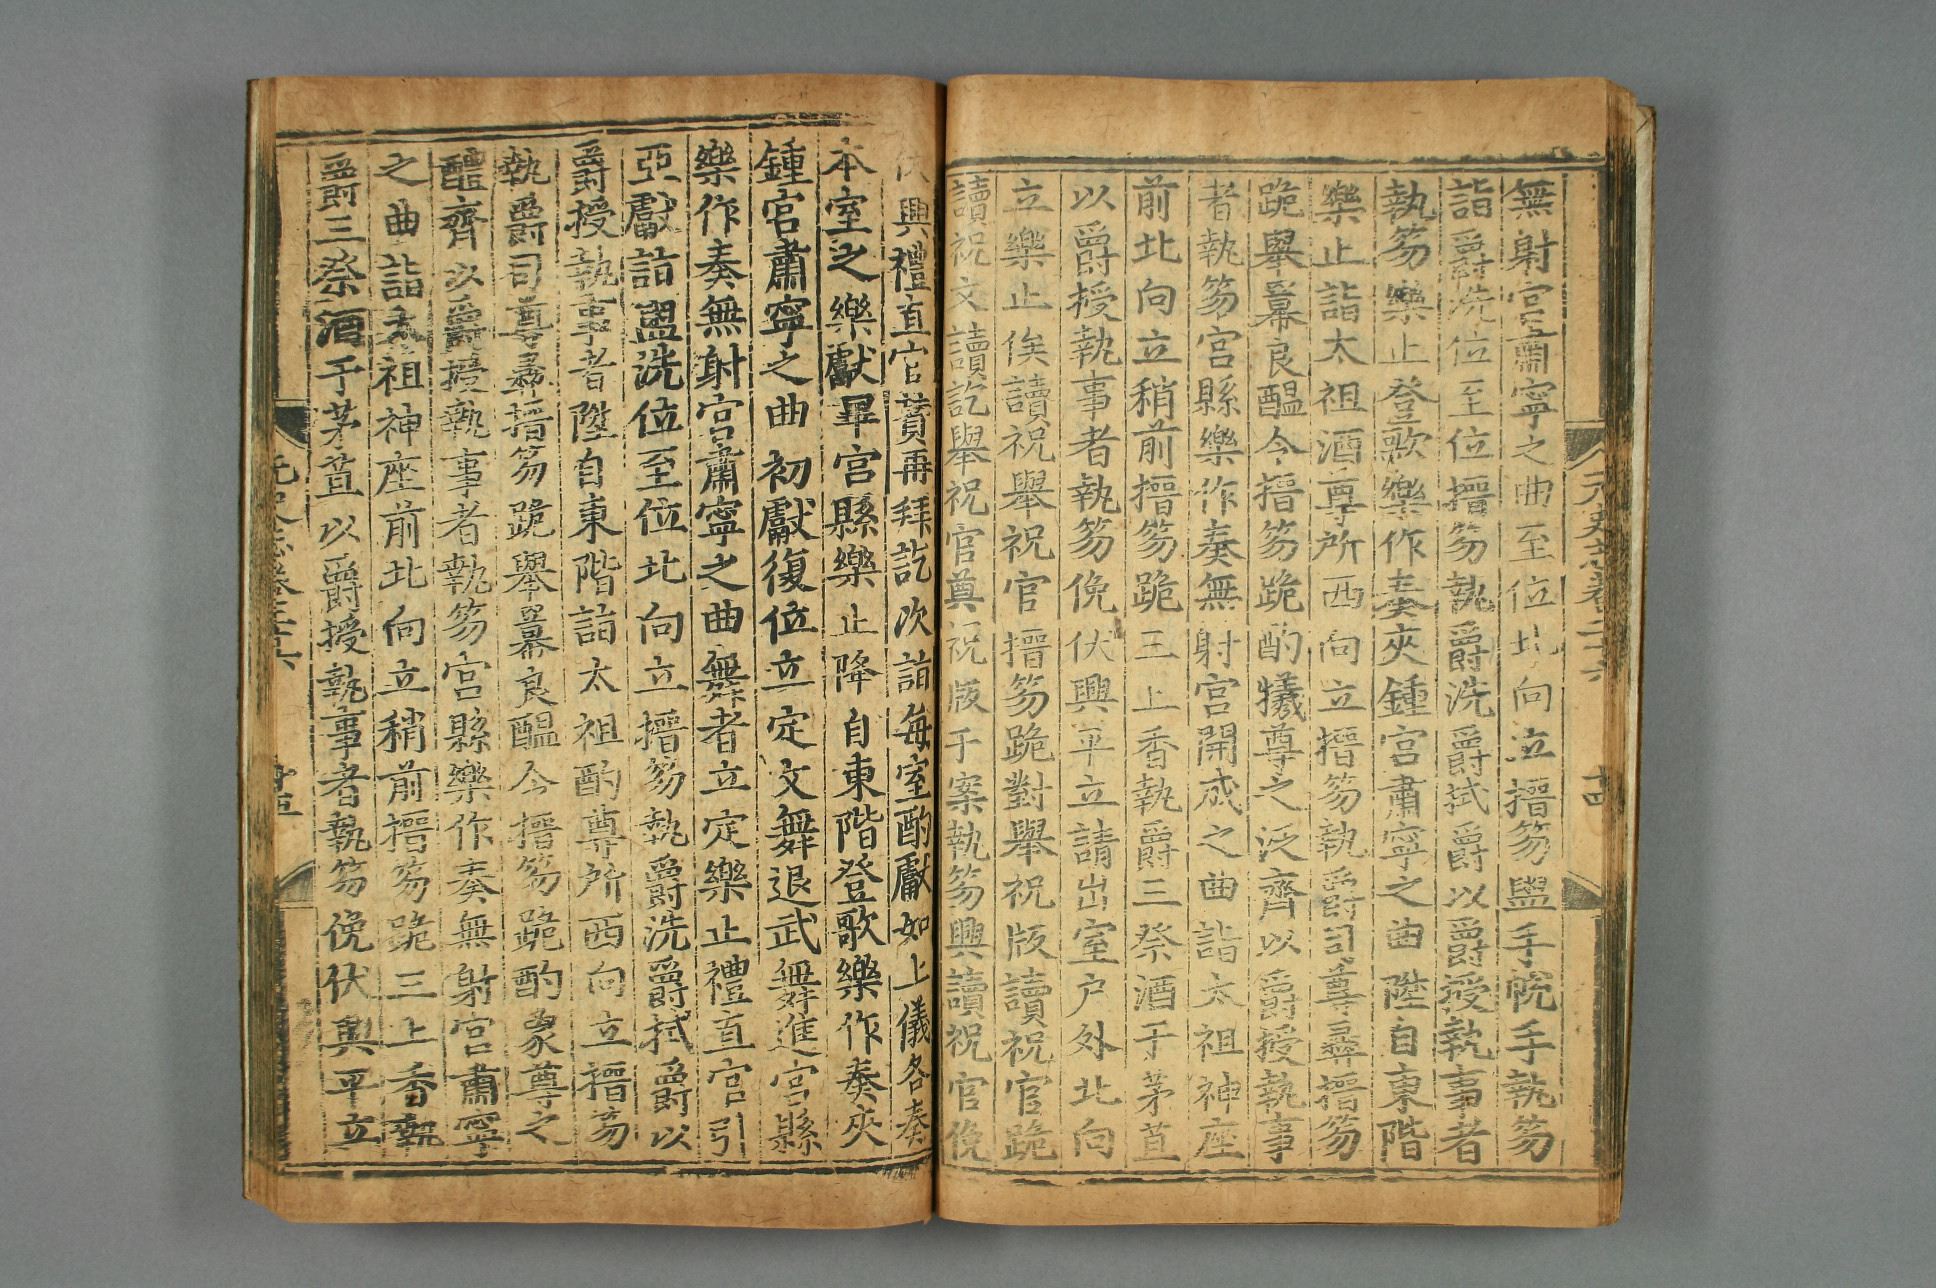 無射宮肅寧之曲至位北向立搢笏盥手帨手執笏
詣爵洗位至位搢笏執爵洗爵拭爵以爵授執事者
執笏樂止登歌樂作奏夾鍾宮肅寧之曲陞自東階
樂止詣太祖酒尊所西向立搢笏執爵司尊彞搢笏
跪舉冪良醞令搢笏跪酌犧尊之泛齊以爵授執事
者執笏宮縣樂作奏無射宮開成之曲詣太祖神座
前北向立稍前搢笏跪三上香執爵三祭酒于茅苴
以爵授執事者執笏俛伏興平立請出室户外北向
立樂止俟讀祝舉祝官搢笏跪對舉祝版讀祝官跪
讀祝文讀訖舉祝官奠祝版于案執笏興讀祝官俛
伏興禮直官贊再拜訖次詣每室酌獻如上儀各奏
本室之樂獻畢宮縣樂止降自東階登歌樂作奏夾
鍾宮肅寧之曲初獻復位立定文舞退武舞進宮縣
樂作奏無射宮肅寧之曲舞者立定樂止禮直官引
亞獻詣盥洗位至位北向立搢笏執爵洗爵拭爵以
爵授執事者陞自東階詣太祖酌尊所西向立搢笏
執爵司尊彞搢笏跪舉冪良醞令搢笏跪酌象尊之
醴齊以爵授執事者執笏宮縣樂作奏無射宮肅寧
之曲詣太祖神座前北向立稍前搢笏跪三上香執
爵三祭酒于茅苴以爵授執事者執笏俛伏興平立